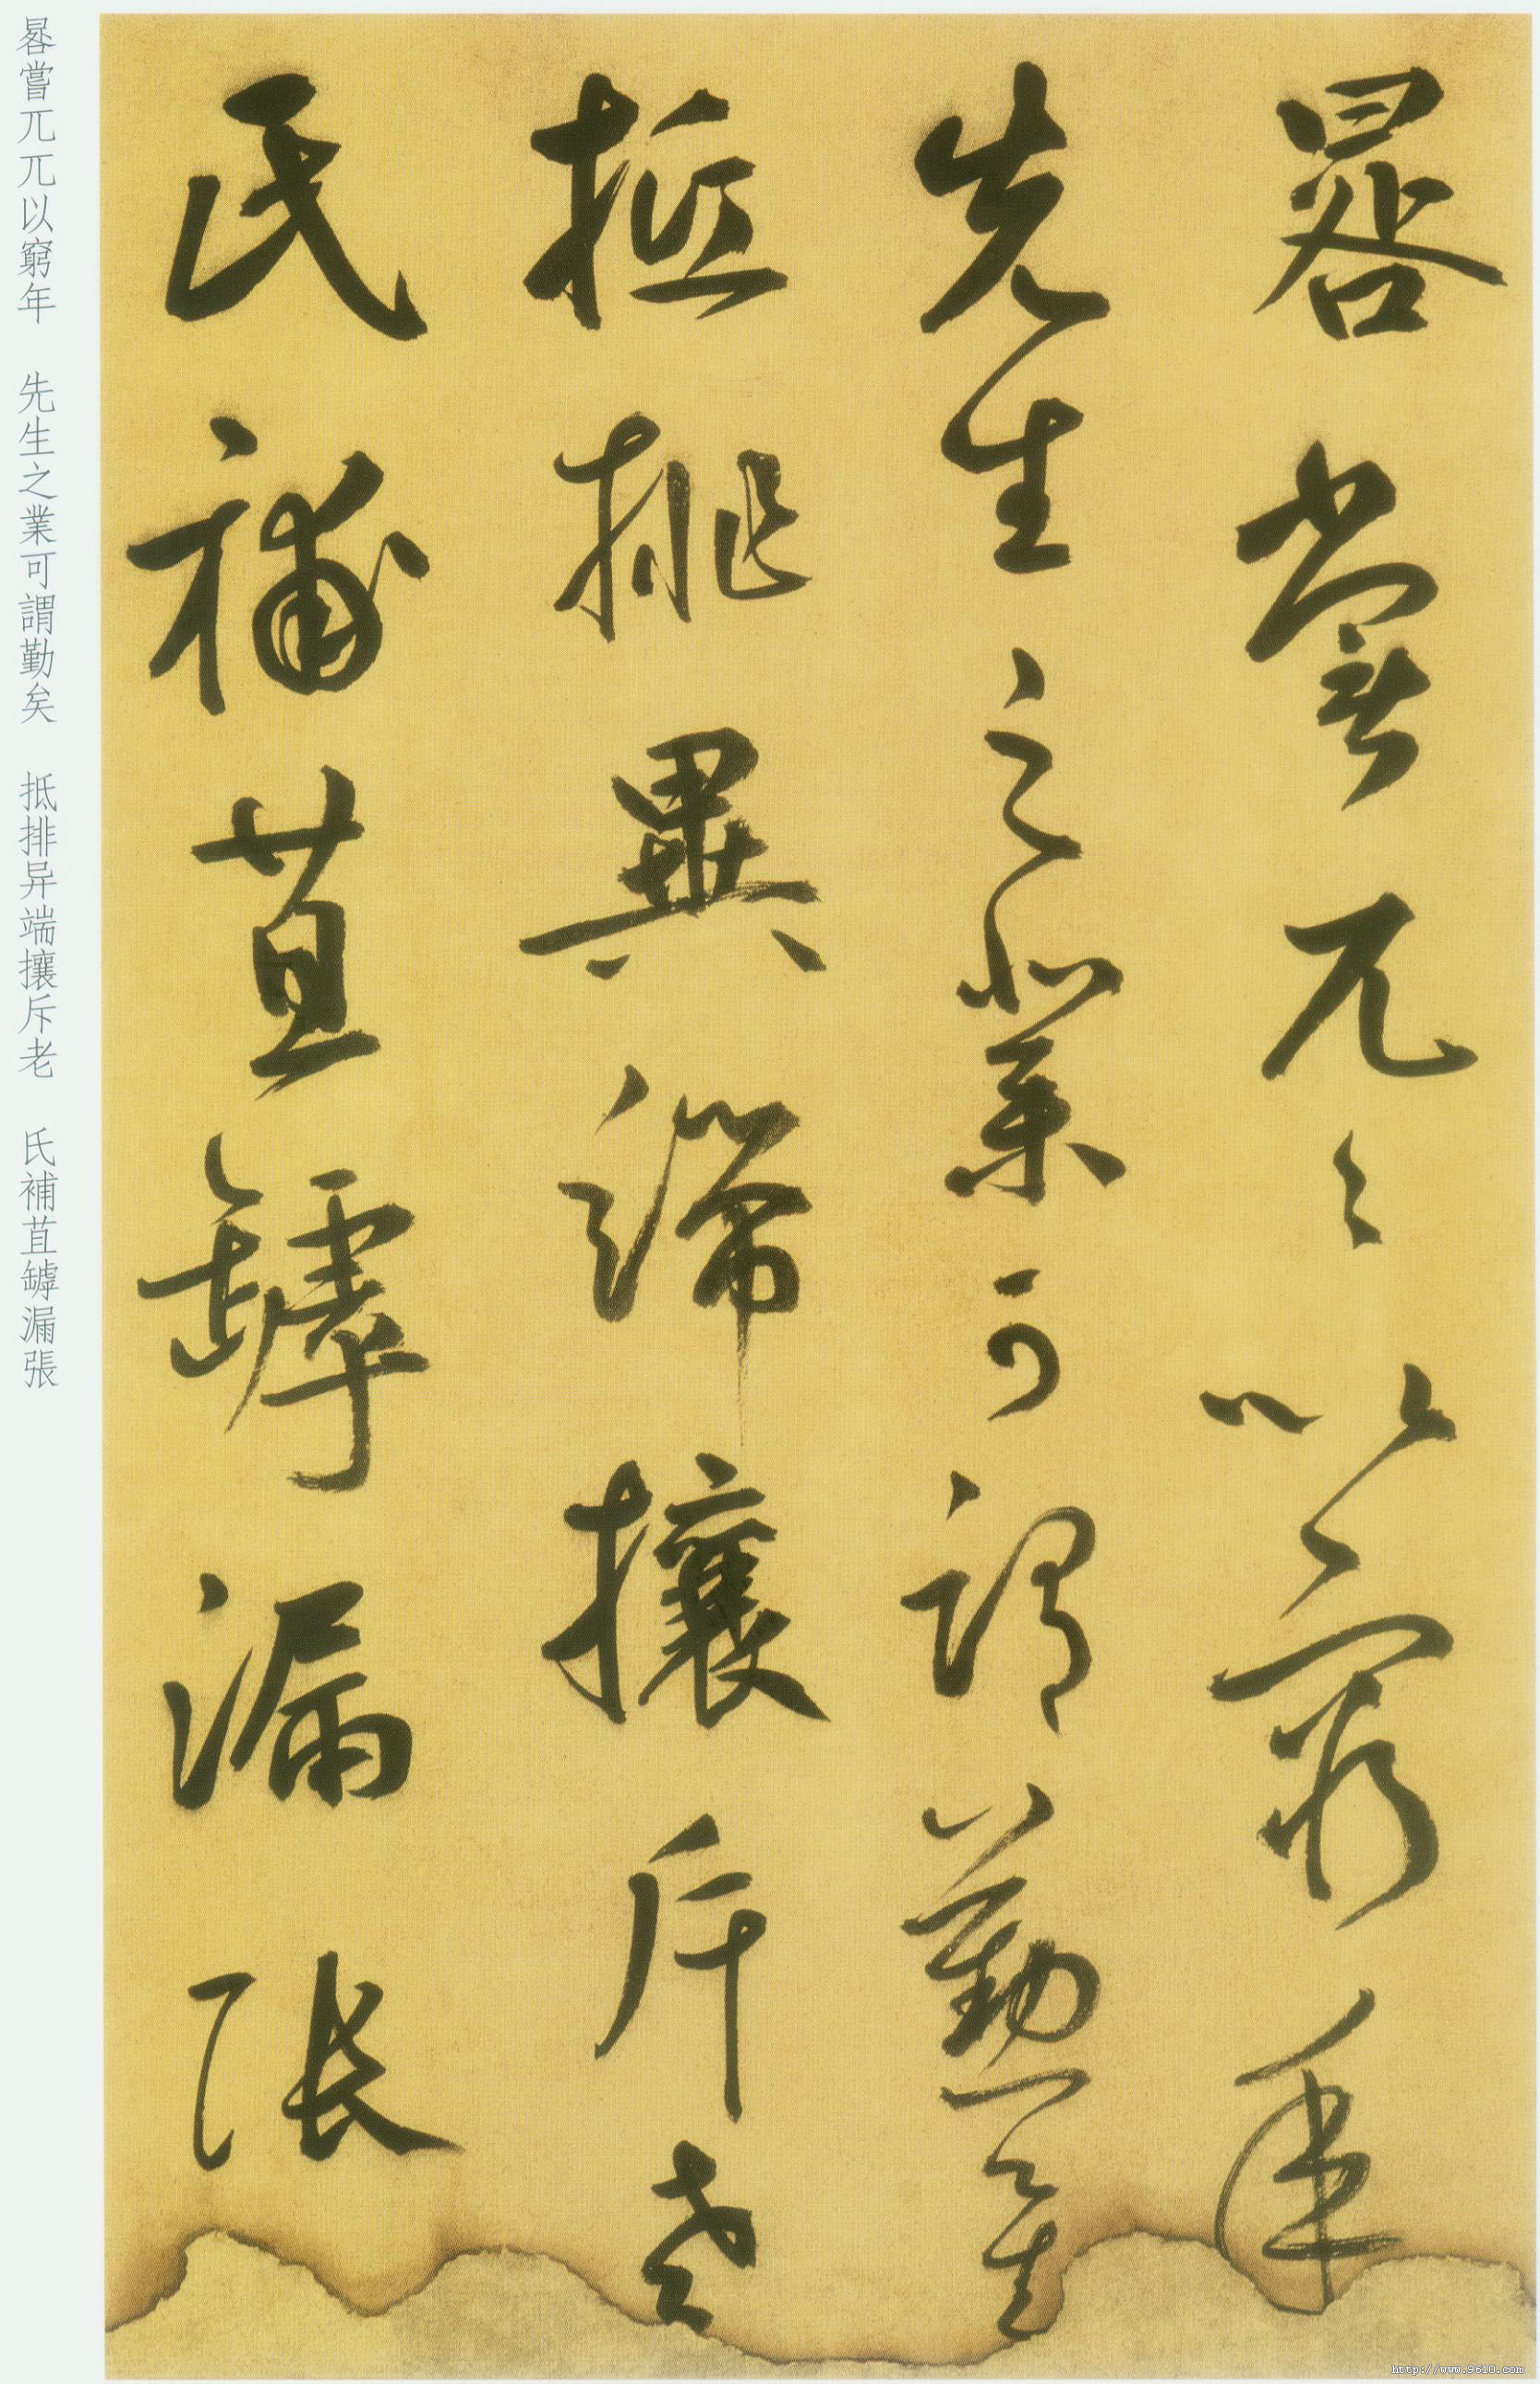 晷嘗兀〻以窮年
先生之業可謂勤矣
抵排異端攘斥老
氏補苴罅漏張
晷嘗兀兀以窮年 先生之業可謂勤矣 抵排异端攘斥老 氏補苴罅漏張
http://www.9610.com